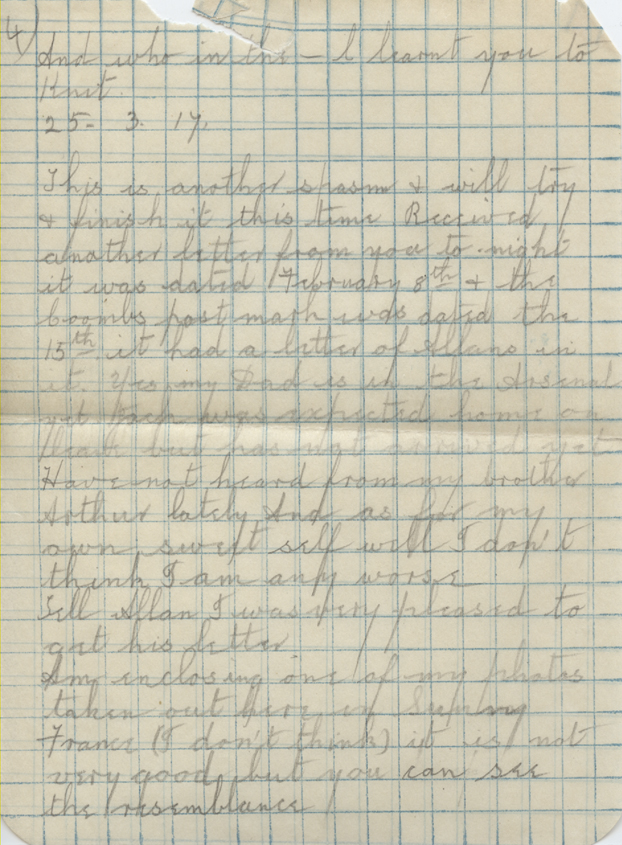 4)
And who in the — I learnt you to
Knit.
25- 3. 17.
This is another spasm & will try
& finish it this time Received
another letter from you to-night
it was dated February 8th & the
post mark was dated the
15th it had a letter of Allans in
it. Yes my Dad is in the Arsenal
yet was expected home on
leave but has not arrived yet
Have not heard from my brother
Arthur lately And as for my
own sweet self well I don't
think I am any worse
Tell Allan I was very pleased to
get his letter.
Am enclosing one of my photos
taken out here in Sunny
France (I don't think) it is not
very good but you can see
the resemblance